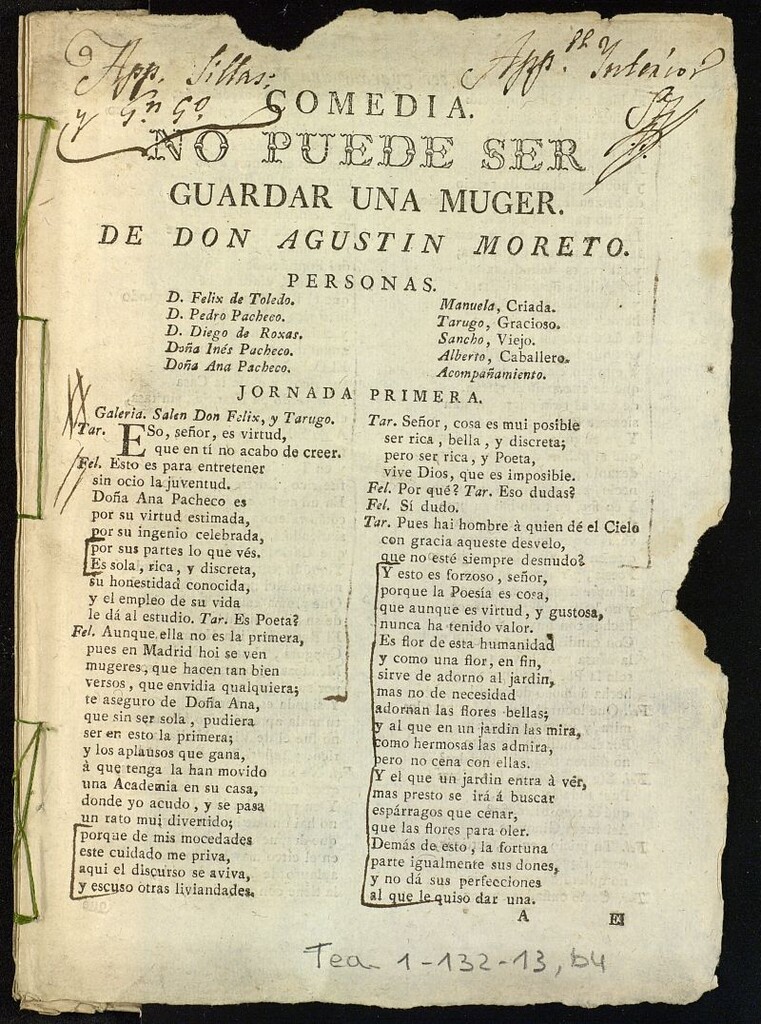 App. Sillas:
y Gn Go.
App. Interior
COMEDIA.
NO PUEDE SER
GUARDAR UNA MUGER.
DE DON AGUSTIN MORETO.
PERSONAS.
D. Felix de Toledo.
D. Pedro Pacheco.
D. Diego de Roxas.
Doña Inés Pacheco.
Doña Ana Pacheco.
Manuela, Criada.
Tarugo, Gracioso.
Sancho, Viejo.
Alberto, Caballero.
Acompañamiento.
JORNADA PRIMERA.
Galeria. Salen Don Felix, y Tarugo.
Tar. ESo, señor, es virtud,
que en tí no acabo de creer.
Fel. Esto es para entretener
sin ocio la juventud.
Doña Ana Pacheco es
por su virtud estimada,
por su ingenio celebrada,
por sus partes lo que vés.
Es sola, rica, y discreta,
su honestidad conocida,
y el empleo de su vida
le dá al estudio. Tar. Es Poeta?
Fel. Aunque ella no es la primera,
pues en Madrid hoi se ven
mugeres, que hacen tan bien
versos, que envidia qualquiera;
te aseguro de Doña Ana,
que sin ser sola, pudiera
ser en esto la primera;
y los aplausos que gana,
à que tenga la han movido
una Academia en su casa,
donde yo acudo, y se pasa
un rato mui divertido;
porque de mis mocedades
este cuidado me priva,
aqui el discurso se aviva,
y escuso otras liviandades.
Tar. Señor, cosa es mui posible
ser rica, bella, y discreta;
pero ser rica, y Poeta,
vive Dios, que es imposible.
Fel. Por qué? Tar. Eso dudas?
Fel. Sí dudo.
Tar. Pues hai hombre à quien dé el Cielo
con gracia aqueste desvelo,
que no esté siempre desnudo?
Y esto es forzoso, señor,
porque la Poesía es cosa,
que aunque es virtud, y gustosa,
nunca ha tenido valor.
Es flor de esta humanidad
y como una flor, en fin,
sirve de adorno al jardin,
mas no de necesidad
adornan las flores bellas;
y al que en un jardin las mira,
como hermosas las admira,
pero no cena con ellas.
Y el que un jardin entra à vér,
mas presto se irá á buscar
espárragos que cenar,
que las flores para oler.
Demás de esto, la fortuna
parte igualmente sus dones,
y no dá sus perfecciones
al que le quiso dar una.
A
El
Tea 1-132-13, b4